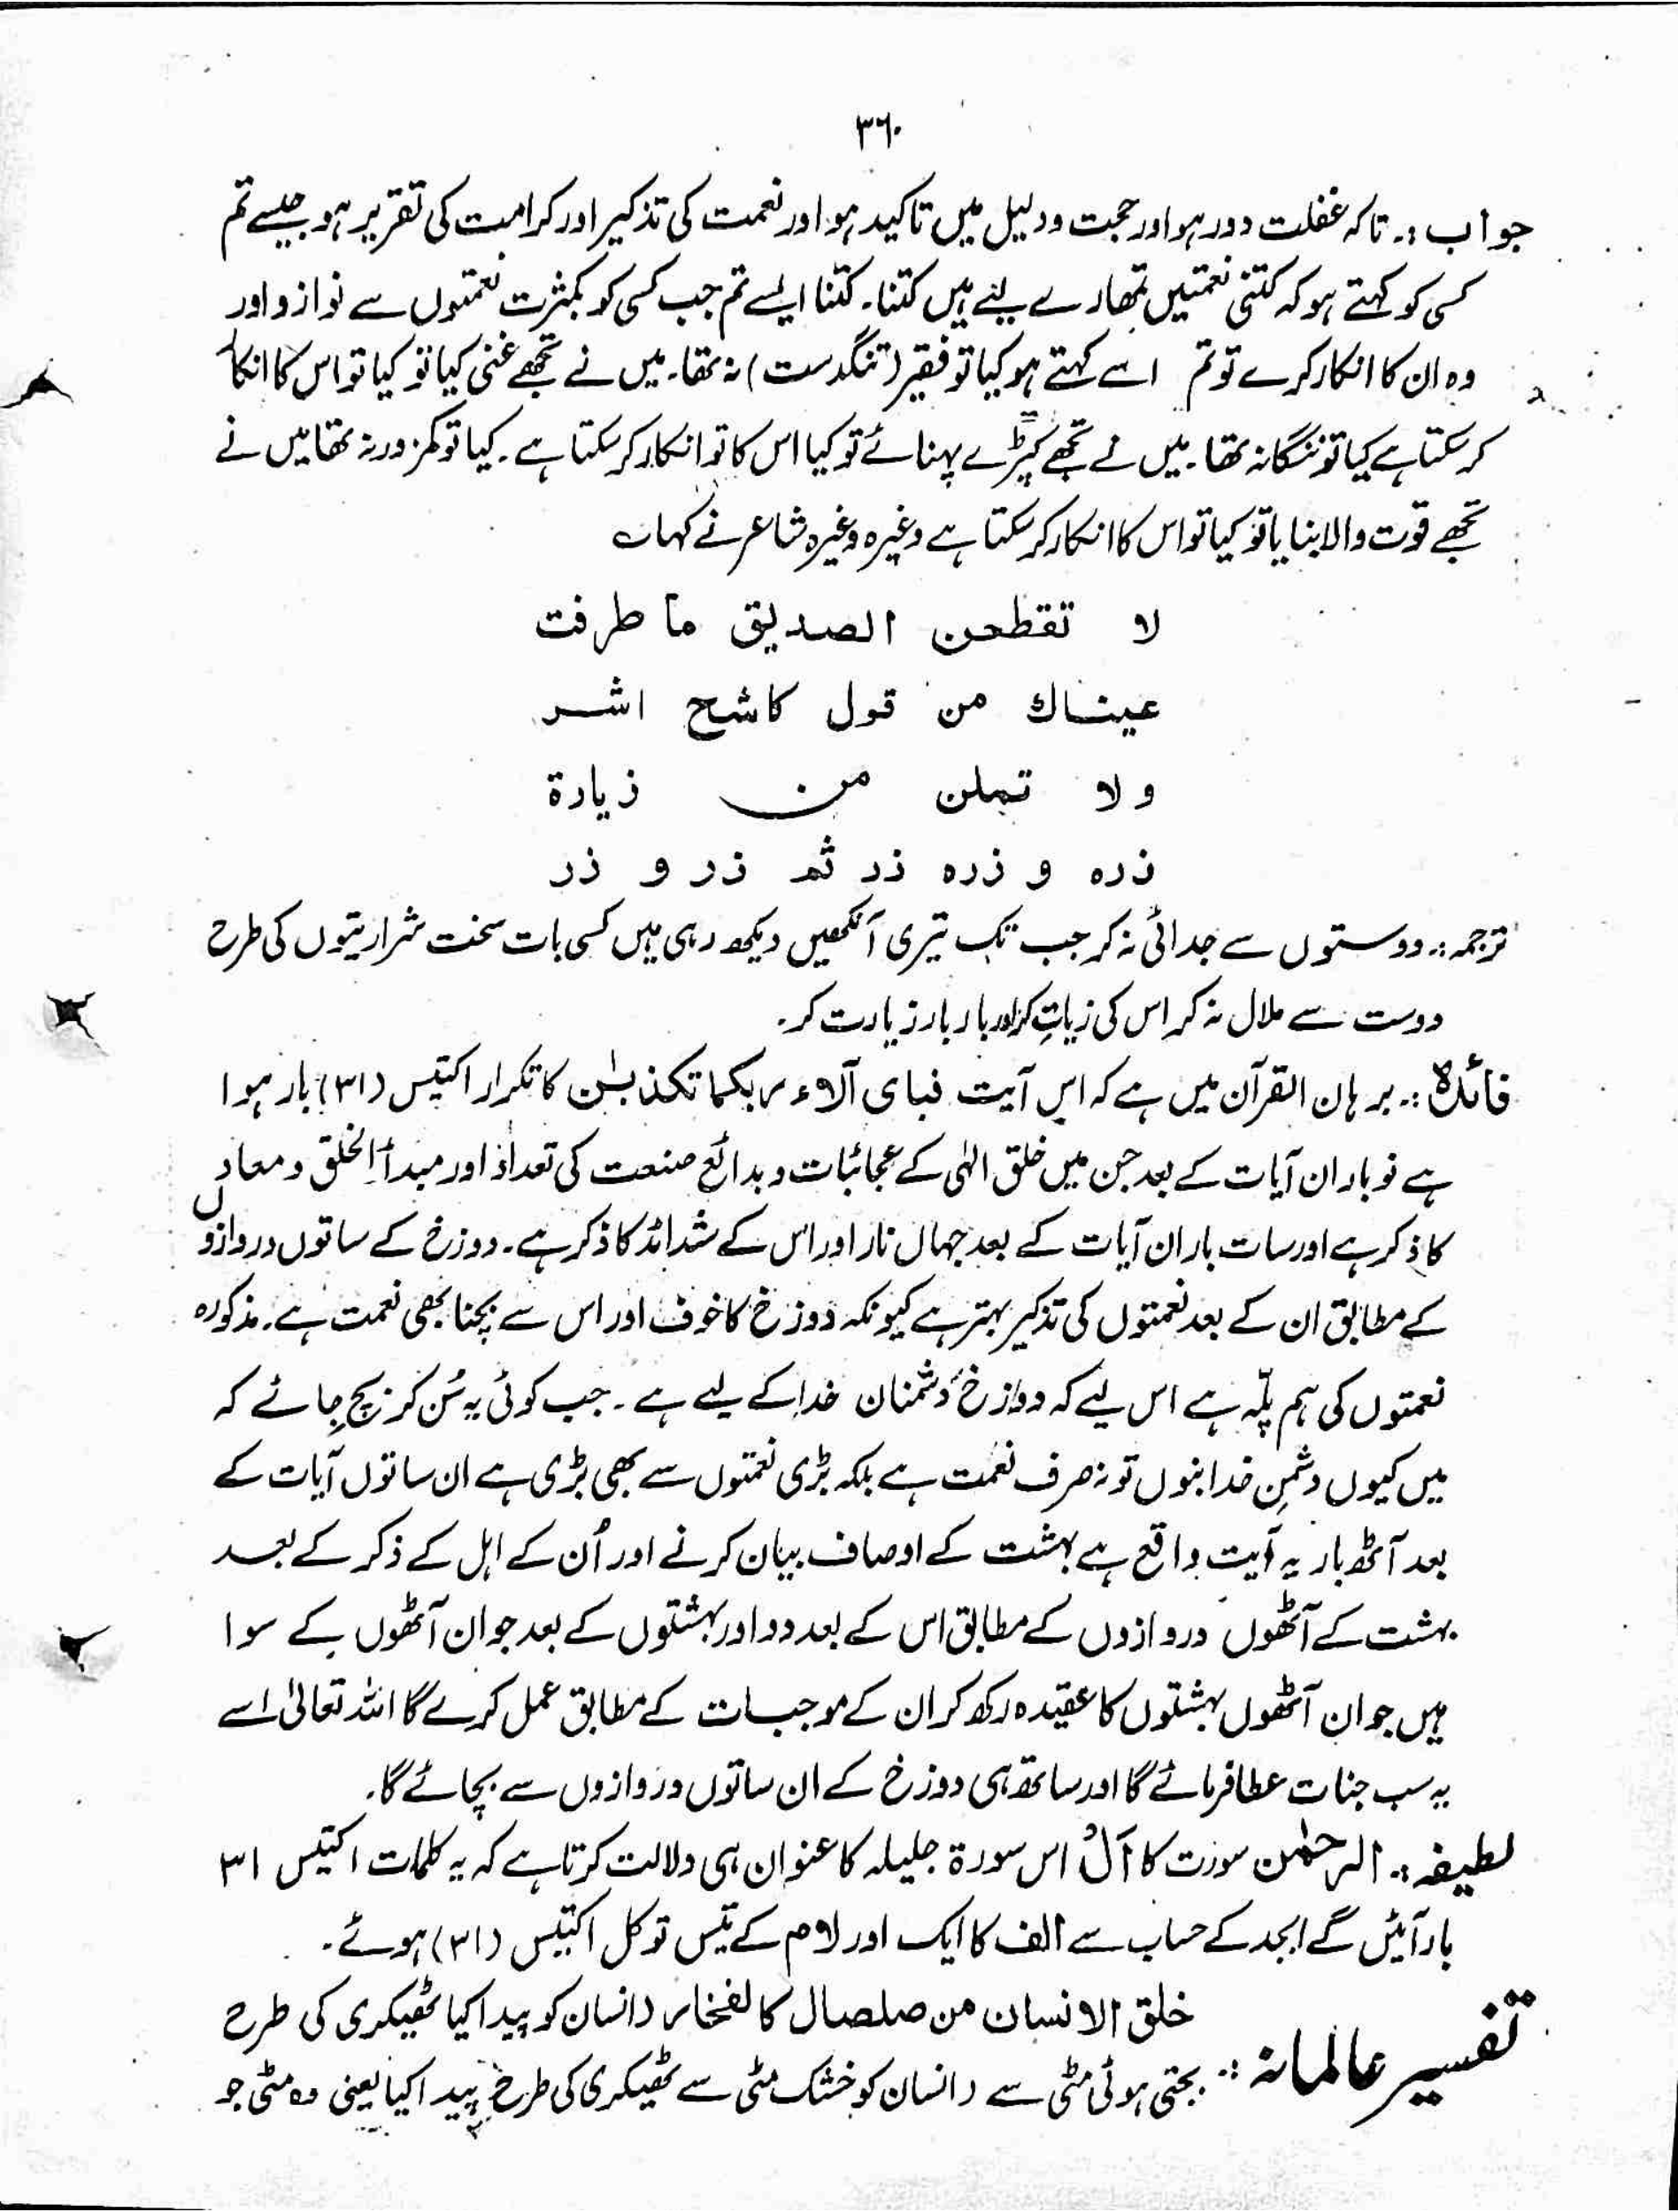 ۳۶۰
جواب :۔ تاکہ غفلت دور ہو اور حجت ودلیل میں تاکید ہو اور نعمت کی تذکیر اور کرامت کی تقریر ہو جیسے تم
کسی کو کہتے ہو کہ کتنی نعمتیں تمھارے لیے ہیں کتنا ۔ کتنا ایسے تم جب کسی کو بکثرت نعمتوں سے نوازو اور
وہ ان کا انکار کرے تو تم اسے کہتے ہو کیا تو فقیر (تنگدست) نہ تھا ۔ میں نے تجھے غنی کیا تو کیا تو اس کا انکار
کر سکتا ہے کیا تو ننگا نہ تھا ۔ میں نے تجھے کپڑے پہنائے تو کیا اس کا تو انکار کر سکتا ہے ۔ کیا تو کمزور نہ تھا میں نے
تجھے قوت والا بنایا تو کیا تو اس کا انکار کر سکتا ہے وغیرہ وغیرہ شاعر نے کہا ؎
لا تقطعن الصدیق ما طرفت
عیناك من قول کاشح اشر
و لا تملن من زیارة
زره و زره زر ثم زر و زر
ترجمہ :۔ دوستوں سے جدائی نہ کر جب تک تیری آنکھیں دیکھ رہی ہیں کسی بات سخت شرارتیوں کی طرح
دوست سے ملال نہ کر اس کی زیارت کر اور بار بار زیارت کر ۔
فائدہ :۔ برہان القرآن میں ہے کہ اس آیت فبای آلاء ربکما تکذبٰن کا تکرار اکتیس (۳۱) بار ہوا
ہے نو بار ان آیات کے بعد جن میں خلق الہٰی کے عجائبات و بدائع صنعت کی تعداد اور مبدأ الخلق و معاد
کا ذکر ہے اور سات بار ان آیات کے بعد جہاں نار اور اس کے شدائد کا ذکر ہے ۔ دوزخ کے ساتوں دروازوں
کے مطابق ان کے بعد نعمتوں کی تذکیر بہتر ہے کیونکہ دوزخ کا خوف اور اس سے بچنا بھی نعمت ہے ۔ مذکورہ
نعمتوں کی ہم پلّہ ہے اس لیے کہ دوازخ دشمنان خدا کے لیے ہے ۔ جب کوئی یہ سُن کر بچ جائے کہ
میں کیوں دشمنِ خدا بنوں تو نہ صرف نعمت ہے بلکہ بڑی نعمتوں سے بھی بڑی ہے ان ساتوں آیات کے
بعد آٹھ بار یہ آیت واقع ہے بہشت کے اوصاف بیان کرنے اور اُن کے اہل کے ذکر کے بعد
بہشت کے آٹھوں دروازوں کے مطابق اس کے بعد دو اور بہشتوں کے بعد جو ان آٹھوں کے سوا
ہیں جو ان آٹھوں بہشتوں کا عقیدہ رکھ کر ان کے موجبات کے مطابق عمل کرے گا اللہ تعالیٰ اسے
یہ سب جنات عطا فرمائے گا اور ساتھ ہی دوزخ کے ان ساتوں دروازوں سے بچائے گا ۔
لطیفہ :۔ الرحمٰن سورت کا اَلْ اس سورۃ جلیلہ کا عنوان ہی دلالت کرتا ہے کہ یہ کلمات اکتیس ۳۱
بار آئیں گے ابجد کے حساب سے الف کا ایک اور لام کے تیس تو کل اکتیس (۳۱) ہوئے ۔
خلق الانسان من صلصال کالفخار (انسان کو پیدا کیا ٹھیکری کی طرح
تفسیر عالمانہ :۔ بجتی ہوئی مٹی سے (انسان کو خشک مٹی سے ٹھیکری کی طرح پیدا کیا یعنی وہ مٹی جو